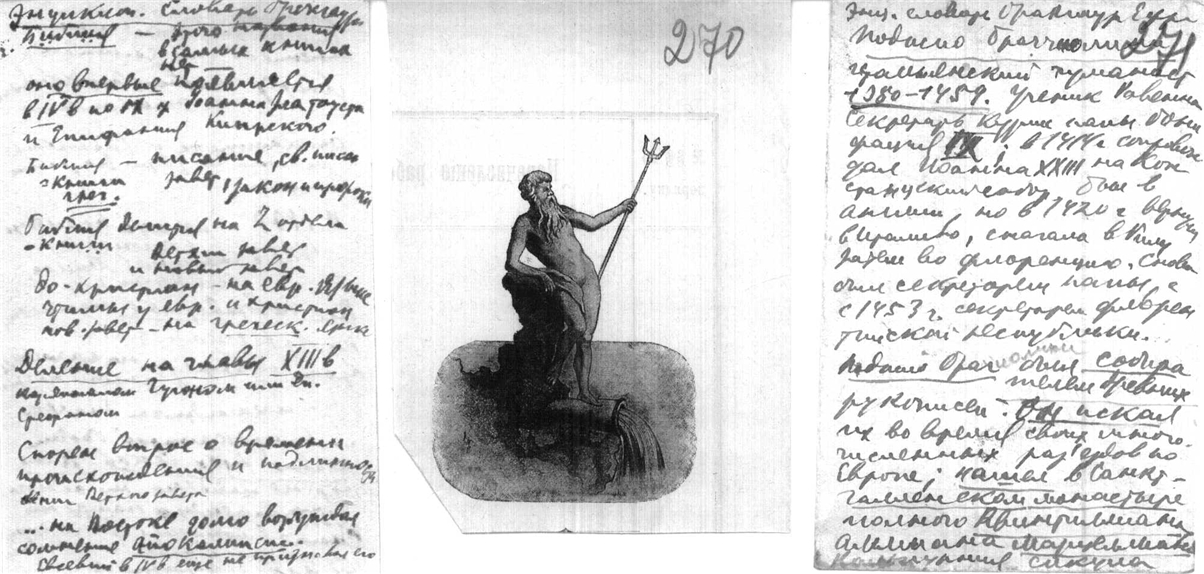 Энциклоп. словарь Брокгауз
Библия — этого названия
в самых книгах
нет
оно впервые появляется
в IV в по РХ у Иоанна Златоуста
и Епифания Кипрского.
Библия — писание, св. писан
= книги завет, закон и пророки
греч.
Библия делится на 2 отдела
= книги Ветхий завет
и новый завет
до-христиан — на евр. языке
чтимых у евр. и христиан
нов. завет — на греческ. язык
Деление на главы XIII в
кардиналом Гугоном или
Спорен вопрос о времени
происхождения и подлинност
книг Ветхого завета
... на Востоке долго возбуждал
сомнение Апокалипсис.
Евсевий в IV в еще не признавал его
270
Энц. словарь Брокгауз Ефр
271
Поджио Браччиолини
итальянский гуманист
1380-1459. Ученик Равенн
Секретарь Курии папы Бони
фация IX, в 1414 г сопровож
дал Иоанна XXIII на Кон
станцский собор, был в
Англии, но в 1420 г вернулся
в Италию, сначала в Риму
затем во Флоренцию. Снова
был секретарем папы, а
с 1453 г. секретарем флорен
тийской республики.
Поджио Браччиолини был собира
телем древних
рукописей. Он искал
их во время своих много
численных раз'ездов по
Европе; нашел в Санкт-
галленском монастыре
полного Квинтилиана
Аммиана Марцеллина